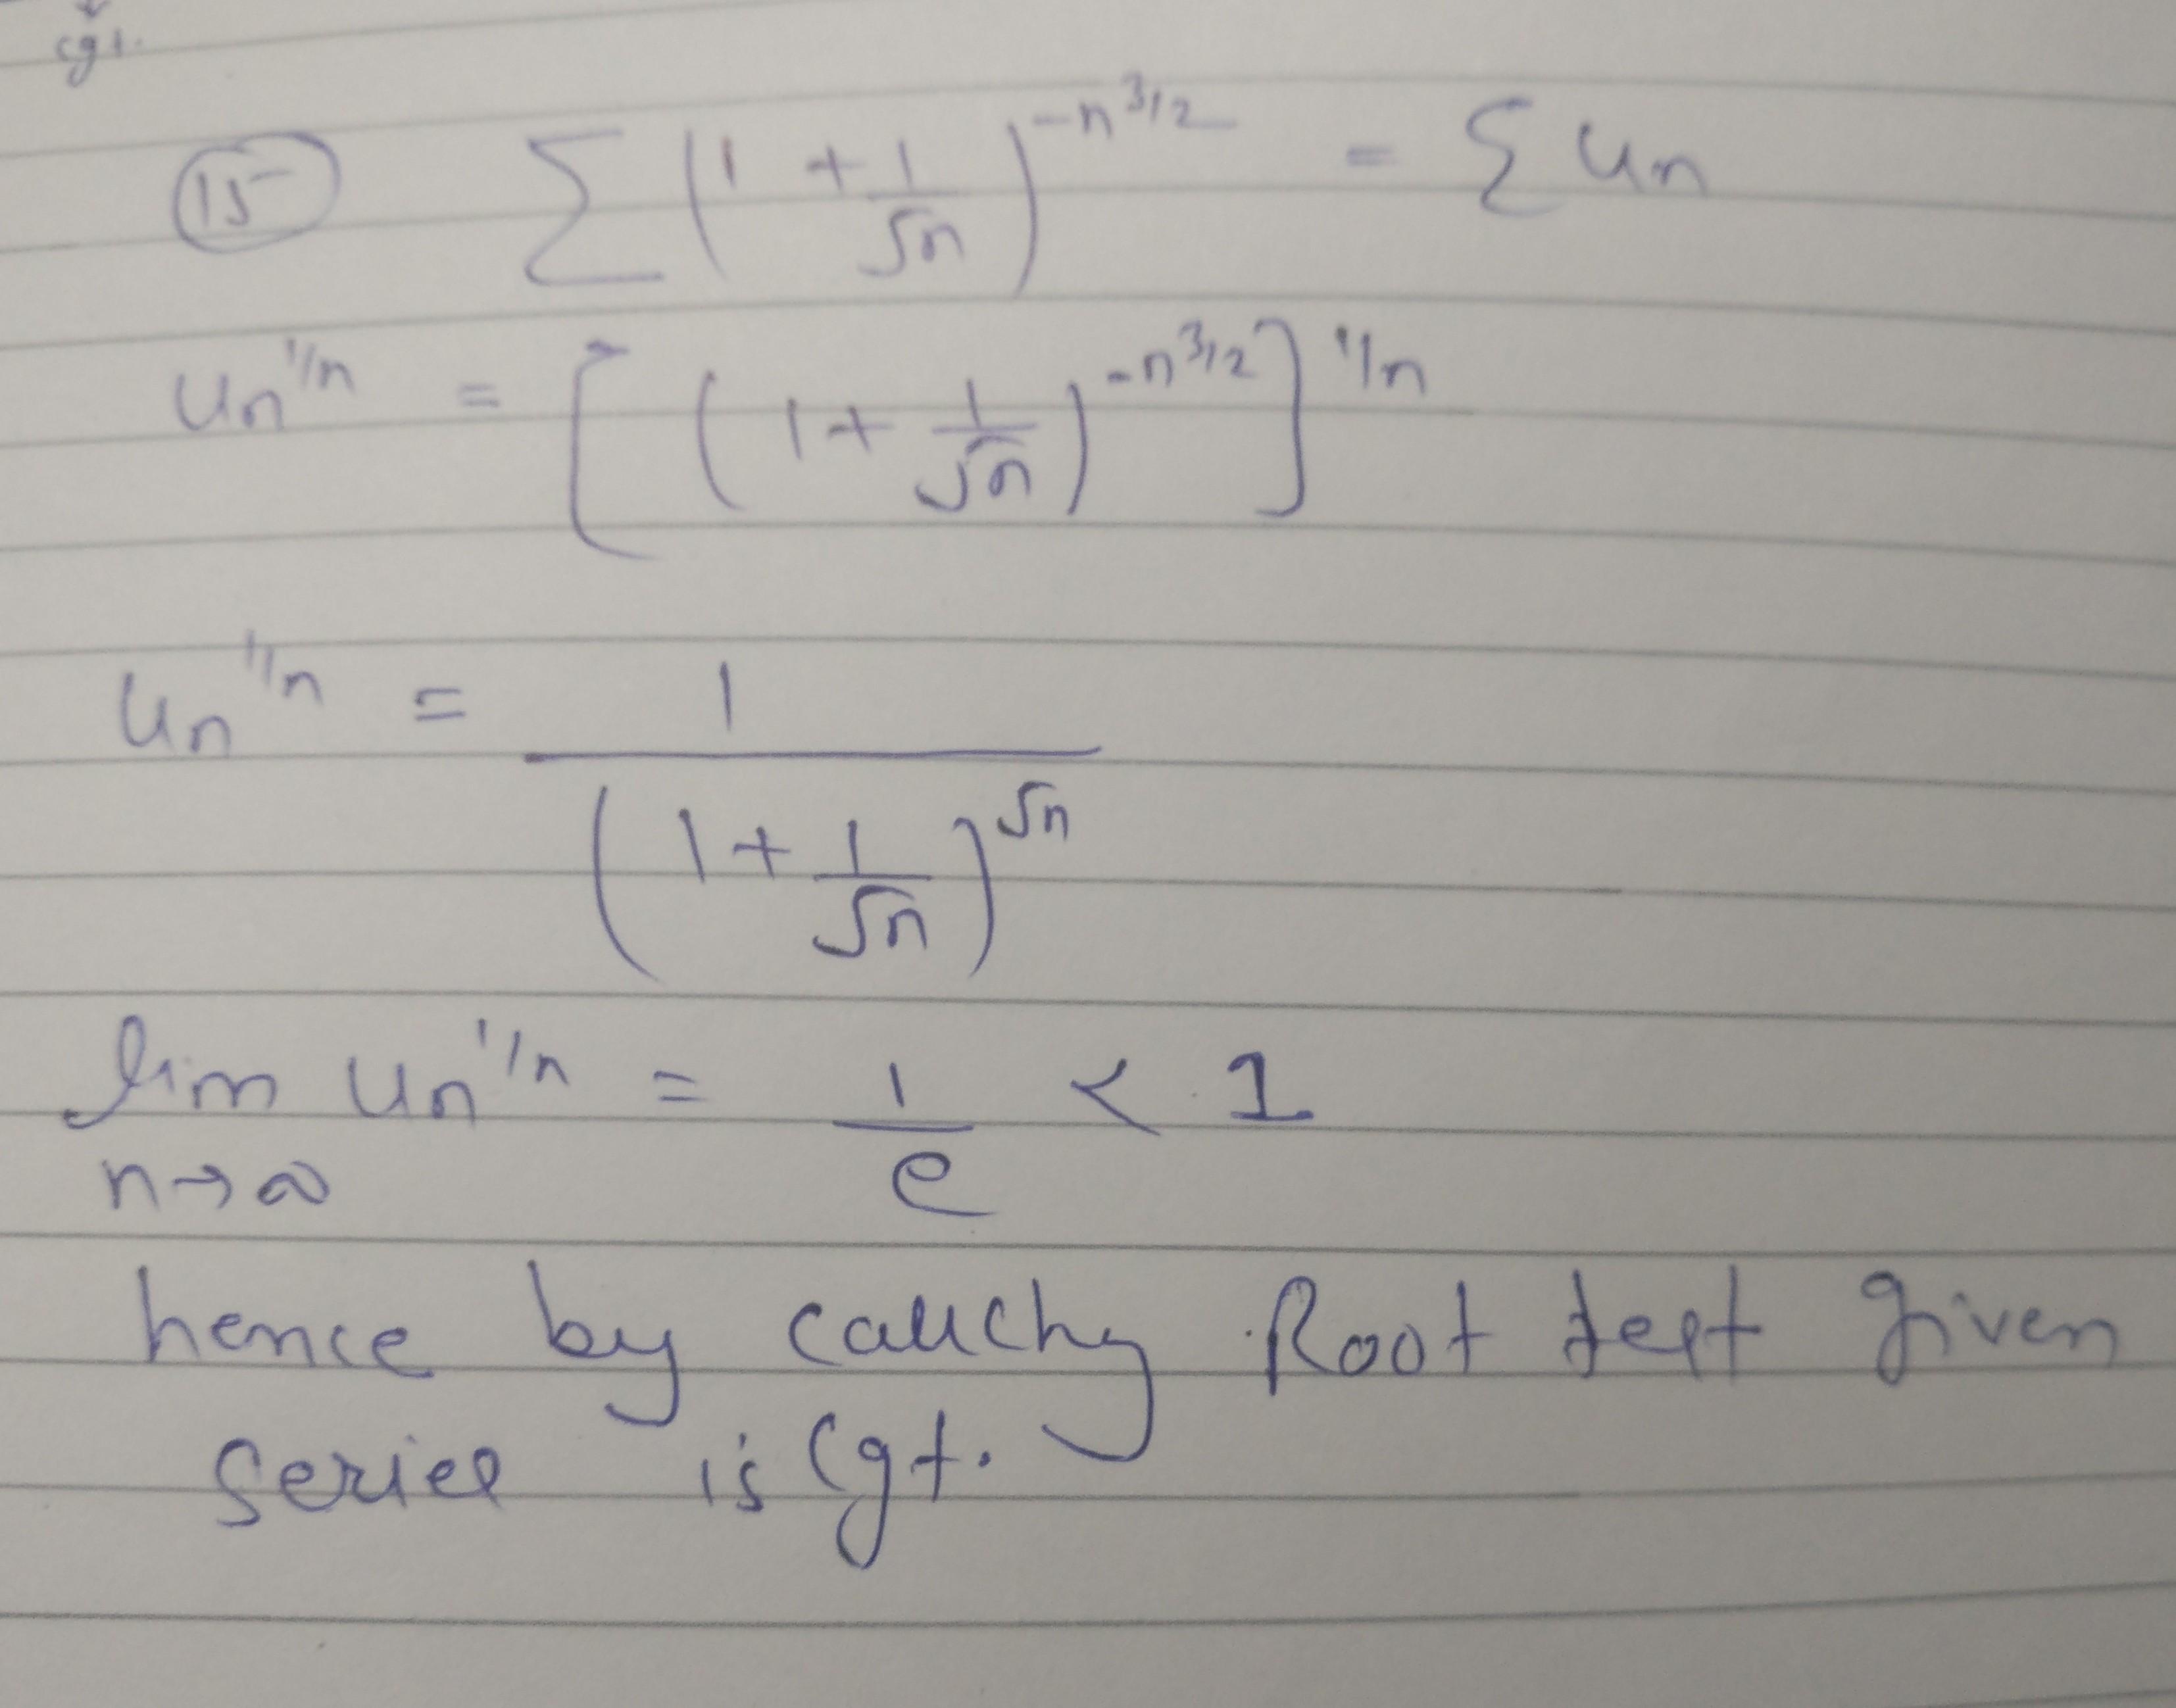 cgt.
(15) Σ (1 + 1/√n)^(-n^(3/2)) = Σ un
un^(1/n) = [(1 + 1/√n)^(-n^(3/2))]^(1/n)
un^(1/n) = 1 / (1 + 1/√n)^(√n)
lim n→∞ un^(1/n) = 1/e < 1
hence by cauchy Root test given
series is cgt.